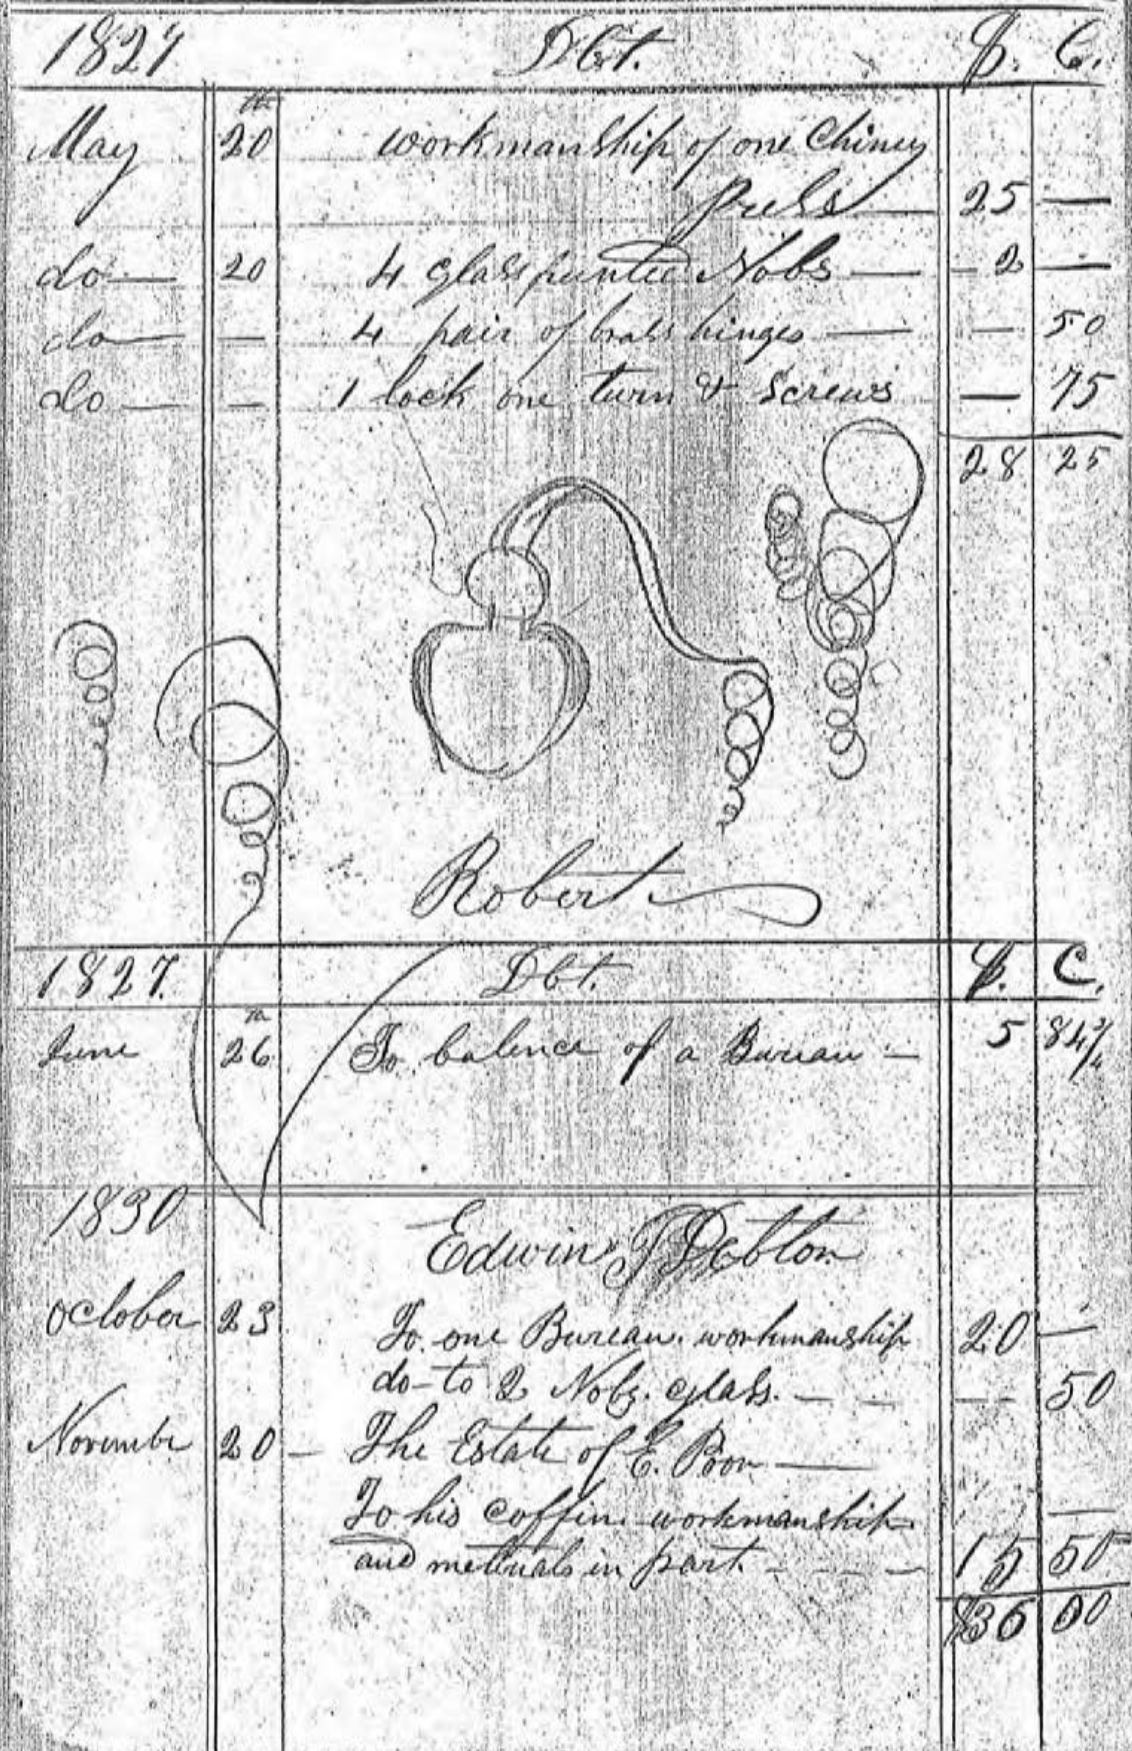 1827 Dbt. $. C.
May 20th workmanship of one Chiney
press — 25 —
do — 20 4 glass Nobs — - 2 —
do — — 4 pair of brass hinges — — 50
do — — 1 lock one turn & Screws — 75
28 25
Robert
1827. Dbt. $. C.
June 26th To balence of a Bureau — 5 84 3/4
1830
Edwin
October 23 To one Bureau workmanship 20 —
do - to 2 Nobs. glass. — — — — 50
November 20 — The Estate of E. Poor —
To his coffin workmanship —
and metteials in part. - - - - 15 50
$36 00